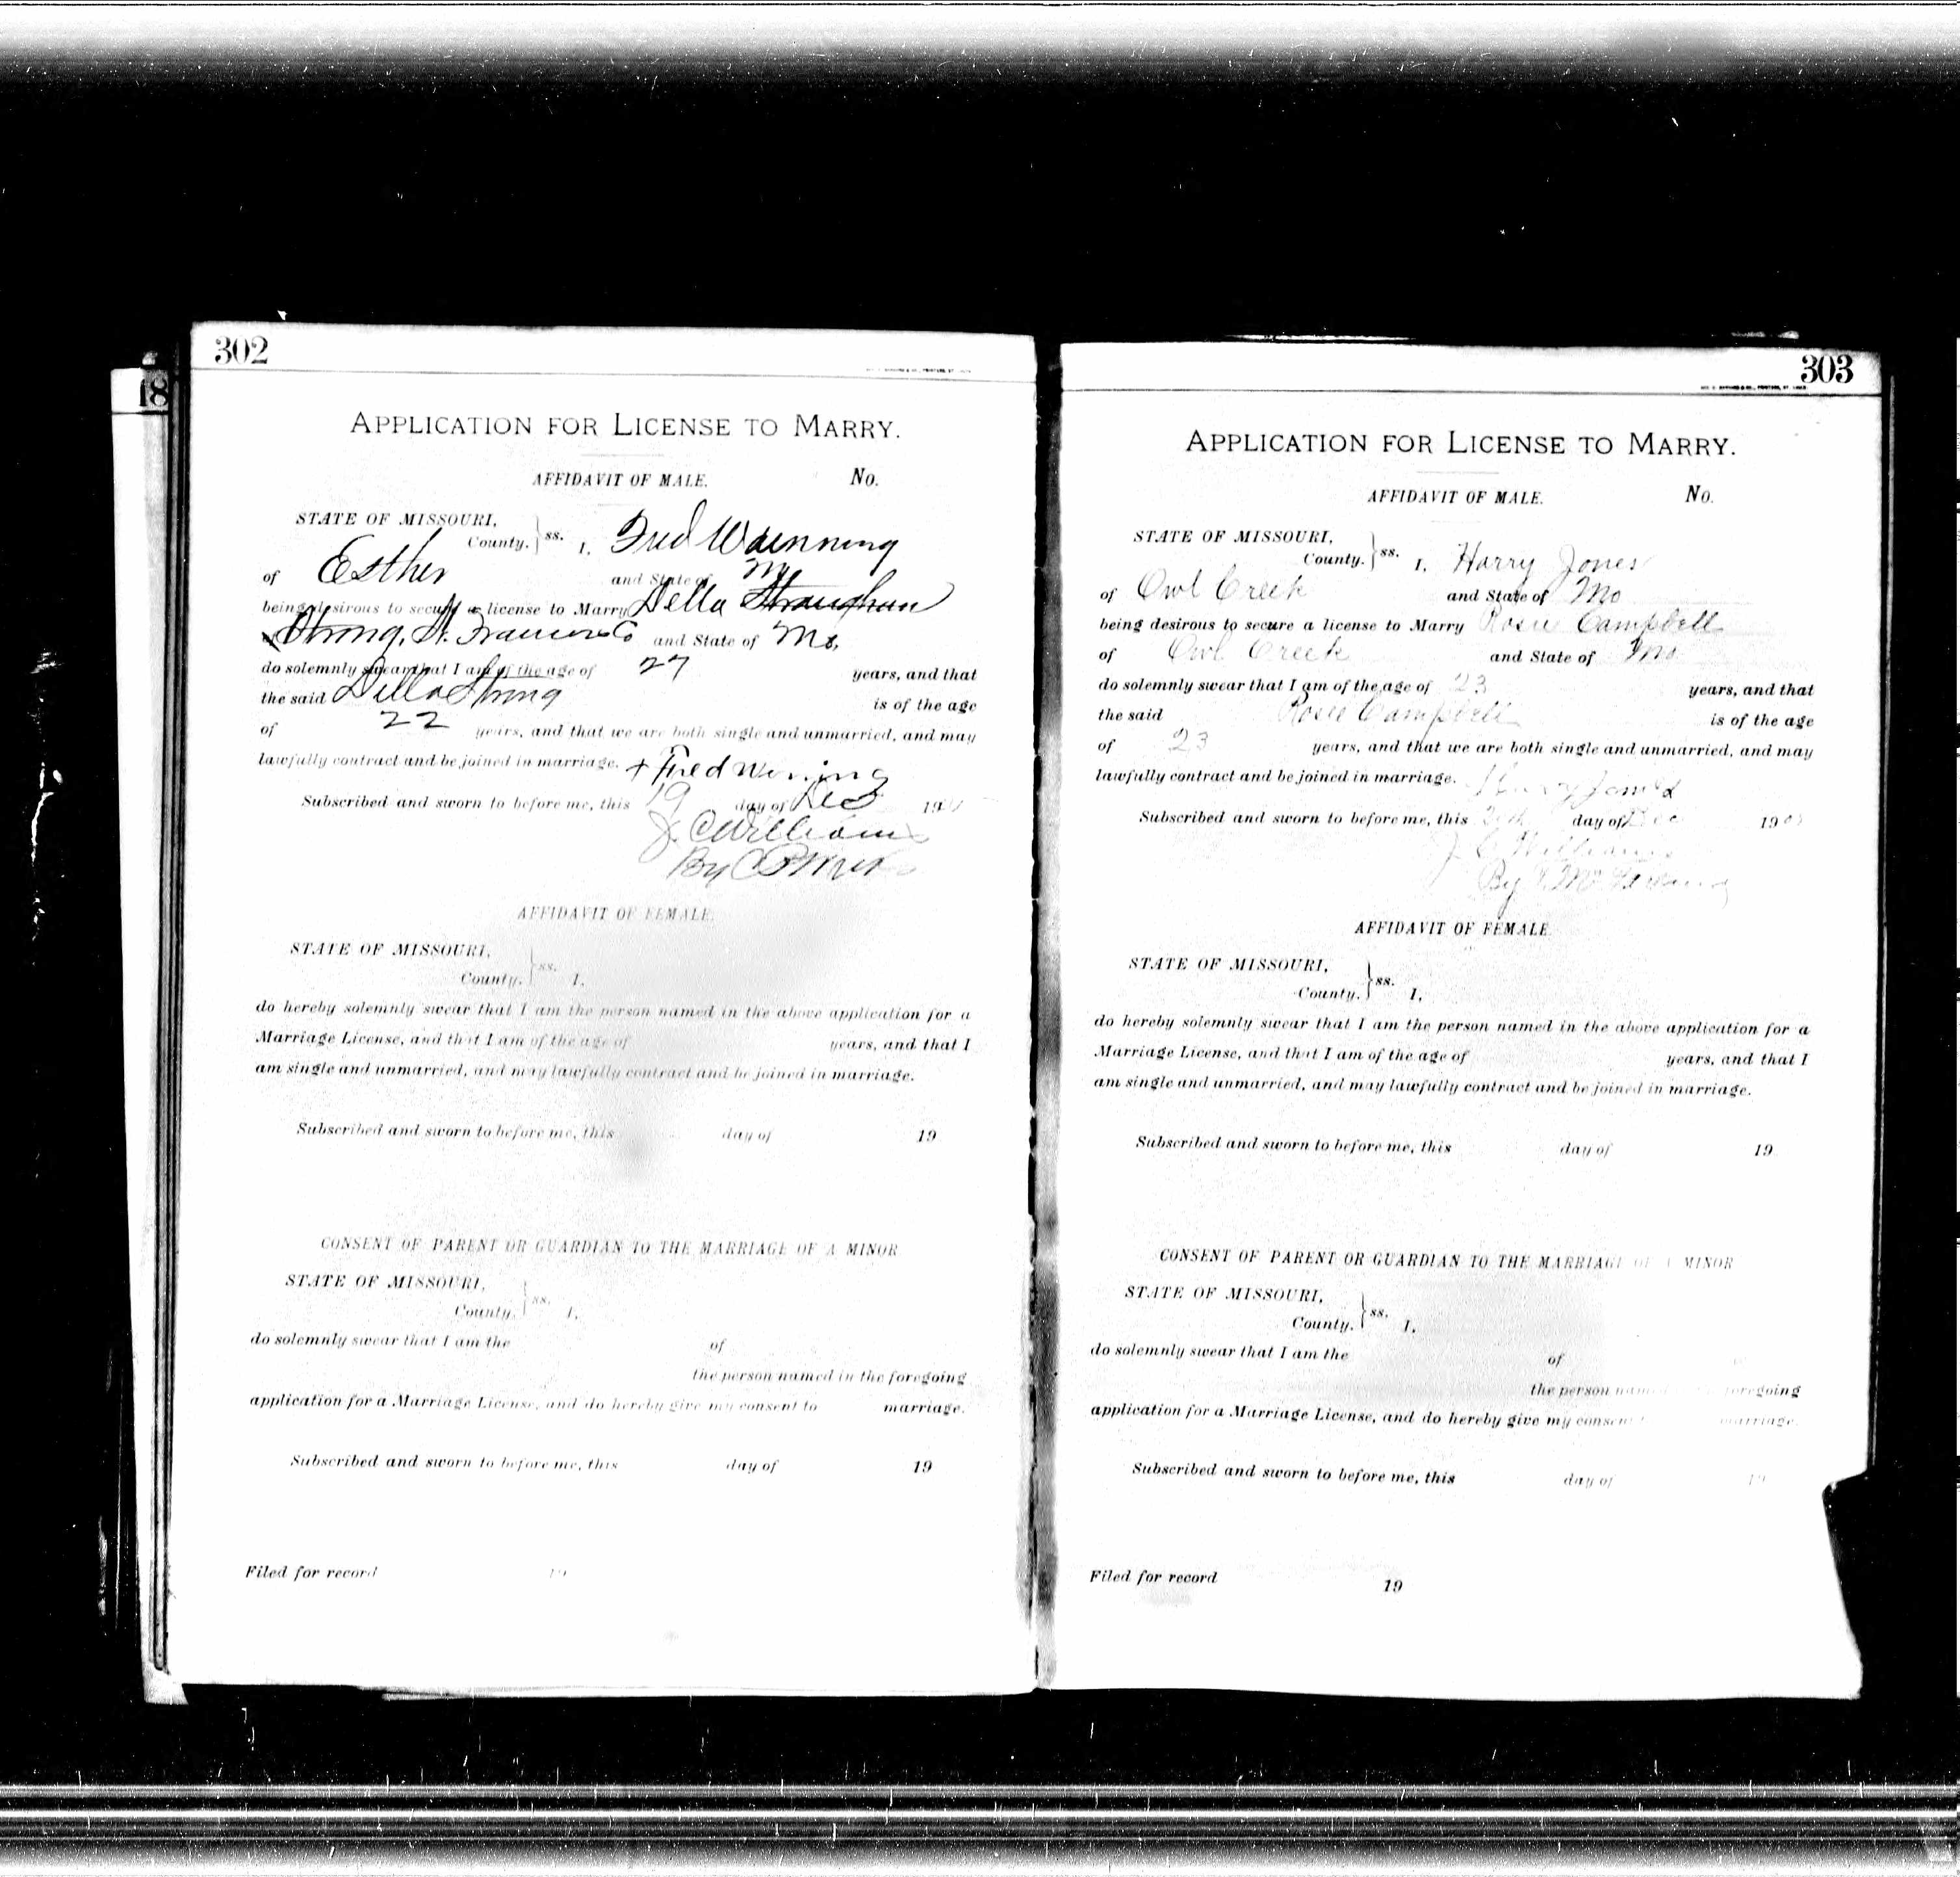 302
18
APPLICATION FOR LICENSE TO MARRY.
AFFIDAVIT OF MALE. No.
STATE OF MISSOURI,
County. } ss. I, Fred Wuenning
of Esther and State of Mo
being desirous to secure a license to Marry Della Straughan
Strong, St. Francois Co and State of Mo,
do solemnly swear that I am of the age of 27 years, and that
the said Della Strong is of the age
of 22 years, and that we are both single and unmarried, and may
lawfully contract and be joined in marriage. + Fred
Subscribed and sworn to before me, this 19 day of Dec 190
J. C Williams
By C
AFFIDAVIT OF FEMALE.
STATE OF MISSOURI,
County. } ss. I,
do hereby solemnly swear that I am the person named in the above application for a
Marriage License, and that I am of the age of years, and that I
am single and unmarried, and may lawfully contract and be joined in marriage.
Subscribed and sworn to before me, this day of 19
CONSENT OF PARENT OR GUARDIAN TO THE MARRIAGE OF A MINOR
STATE OF MISSOURI,
County. } ss. I,
do solemnly swear that I am the of
the person named in the foregoing
application for a Marriage License, and do hereby give my consent to marriage.
Subscribed and sworn to before me, this day of 19
Filed for record 19
303
APPLICATION FOR LICENSE TO MARRY.
AFFIDAVIT OF MALE. No.
STATE OF MISSOURI,
County. } ss. I, Harry Jones
of Owl Creek and State of Mo
being desirous to secure a license to Marry Rosie Campbell
of Owl Creek and State of Mo
do solemnly swear that I am of the age of 23 years, and that
the said Rosie Campbell is of the age
of 23 years, and that we are both single and unmarried, and may
lawfully contract and be joined in marriage. Harry Jones
Subscribed and sworn to before me, this 20th day of Dec 190
J. C Williams
By
AFFIDAVIT OF FEMALE
STATE OF MISSOURI,
County. } ss. I,
do hereby solemnly swear that I am the person named in the above application for a
Marriage License, and that I am of the age of years, and that I
am single and unmarried, and may lawfully contract and be joined in marriage.
Subscribed and sworn to before me, this day of 19
CONSENT OF PARENT OR GUARDIAN TO THE MARRIAGE OF A MINOR
STATE OF MISSOURI,
County. } ss. I,
do solemnly swear that I am the of
the person named foregoing
application for a Marriage License, and do hereby give my consent marriage.
Subscribed and sworn to before me, this day of 19
Filed for record 19